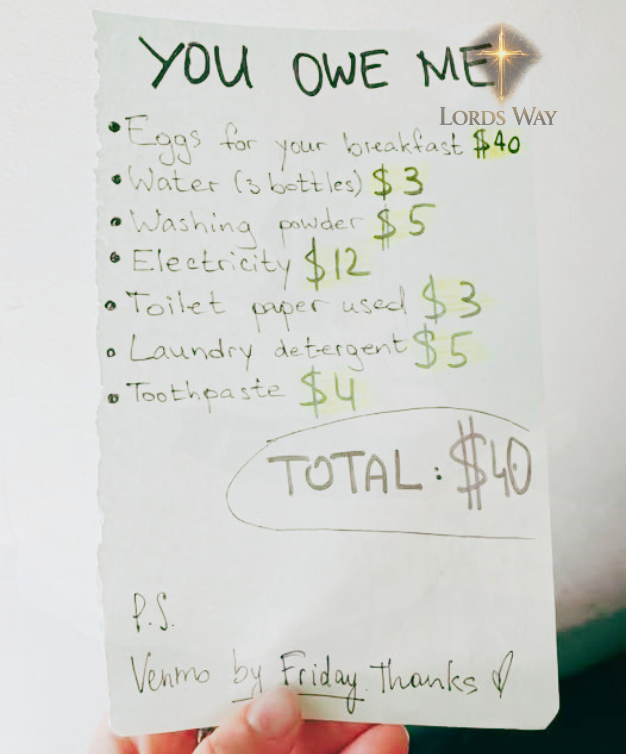 YOU OWE ME
LORDS WAY
• Eggs for your breakfast $40
• Water (3 bottles) $3
• Washing powder $5
• Electricity $12
• Toilet paper used $3
• Laundry detergent $5
• Toothpaste $4
TOTAL: $40
P.S.
Venmo by Friday. Thanks ♡